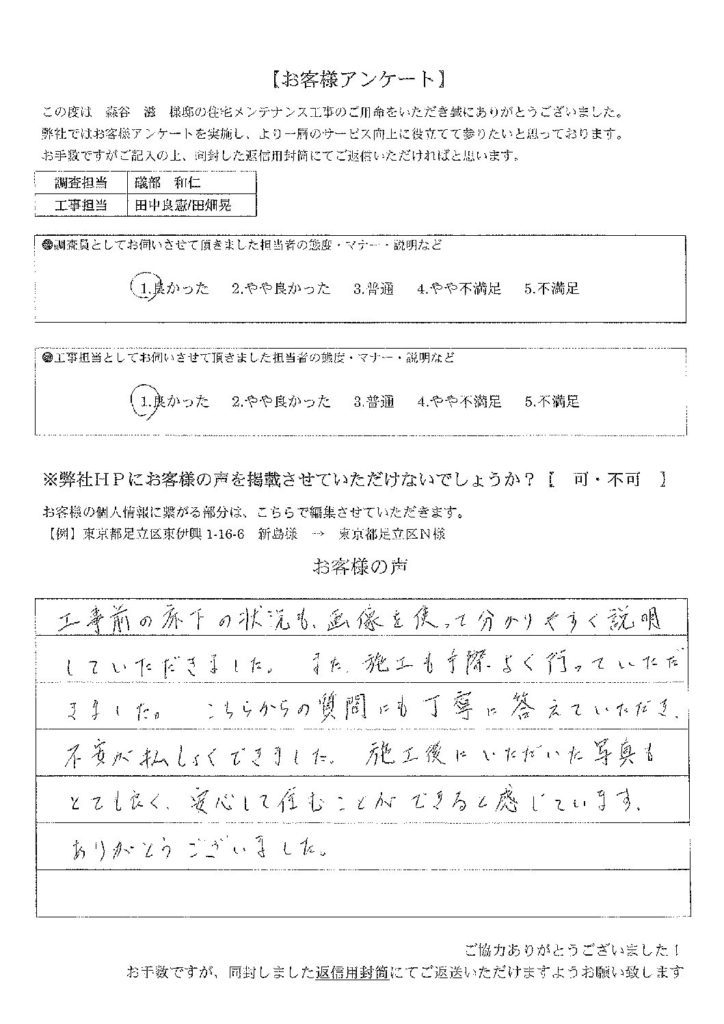 【お客様アンケート】
この度は　森谷　滋　様邸の住宅メンテナンス工事のご用命をいただき誠にありがとうございました。
弊社ではお客様アンケートを実施し、より一層のサービス向上に役立てて参りたいと思っております。
お手数ですがご記入の上、同封した返信用封筒にてご返信いただければと思います。
調査担当　磯部　和仁
工事担当　田中良憲/田畑晃
●調査員としてお伺いさせて頂きました担当者の態度・マナー・説明など
1.良かった　2.やや良かった　3.普通　4.やや不満足　5.不満足
●工事担当としてお伺いさせて頂きました担当者の態度・マナー・説明など
1.良かった　2.やや良かった　3.普通　4.やや不満足　5.不満足
※弊社HPにお客様の声を掲載させていただけないでしょうか？【　可・不可　】
お客様の個人情報に繋がる部分は、こちらで編集させていただきます。
【例】東京都足立区東伊興 1-16-6　新島様　→　東京都足立区N様
お客様の声
工事前の床下の状況も、画像を使って分かりやすく説明
していただきました。また、施工も手際よく行っていただ
きました。こちらからの質問にも丁寧に答えていただき、
不安が払しょくできました。施工後にいただいた写真も
とても良く、安心して住むことができると感じています。
ありがとうございました。
ご協力ありがとうございました！
お手数ですが、同封しました返信用封筒にてご返送いただけますようお願い致します